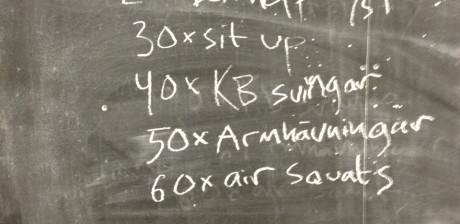 30x sit up
40x KB svingar
50x Armhävningar
60x air squats